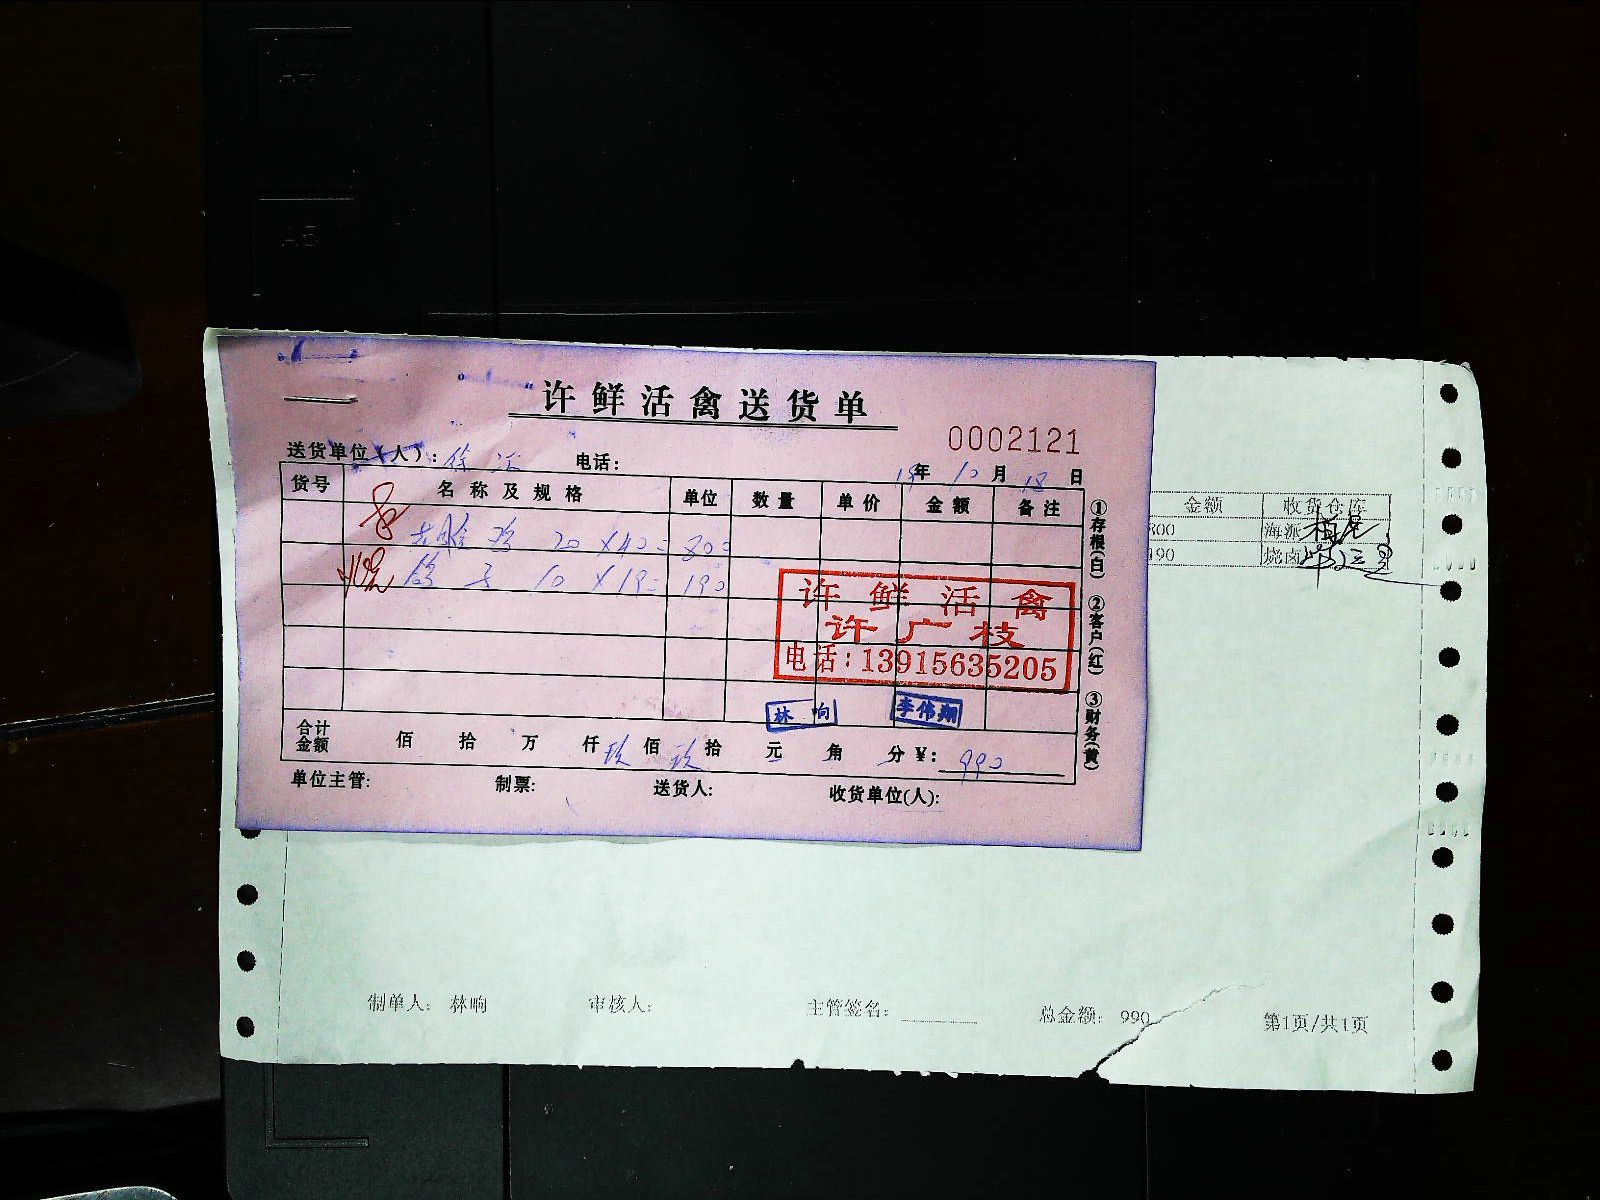 许鲜活禽送货单
0002121
送货单位(人): 徐 电话:
19年 10月 18日
货号 名称及规格 单位 数量 单价 金额 备注
鸡 20×40= 800
鸽子 10×19= 190
许鲜活禽
许广枝
电话:13915635205
林响 李伟翔
合计金额 佰 拾 万 仟 玖佰 玖拾 元 角 分 ¥: 990
单位主管: 制票: 送货人: 收货单位(人):
①存根(白) ②客户(红) ③财务(黄)
金额 收货仓库
800 海派
190 烧卤
制单人: 林响 审核人: 主管签名: 总金额: 990 第1页/共1页